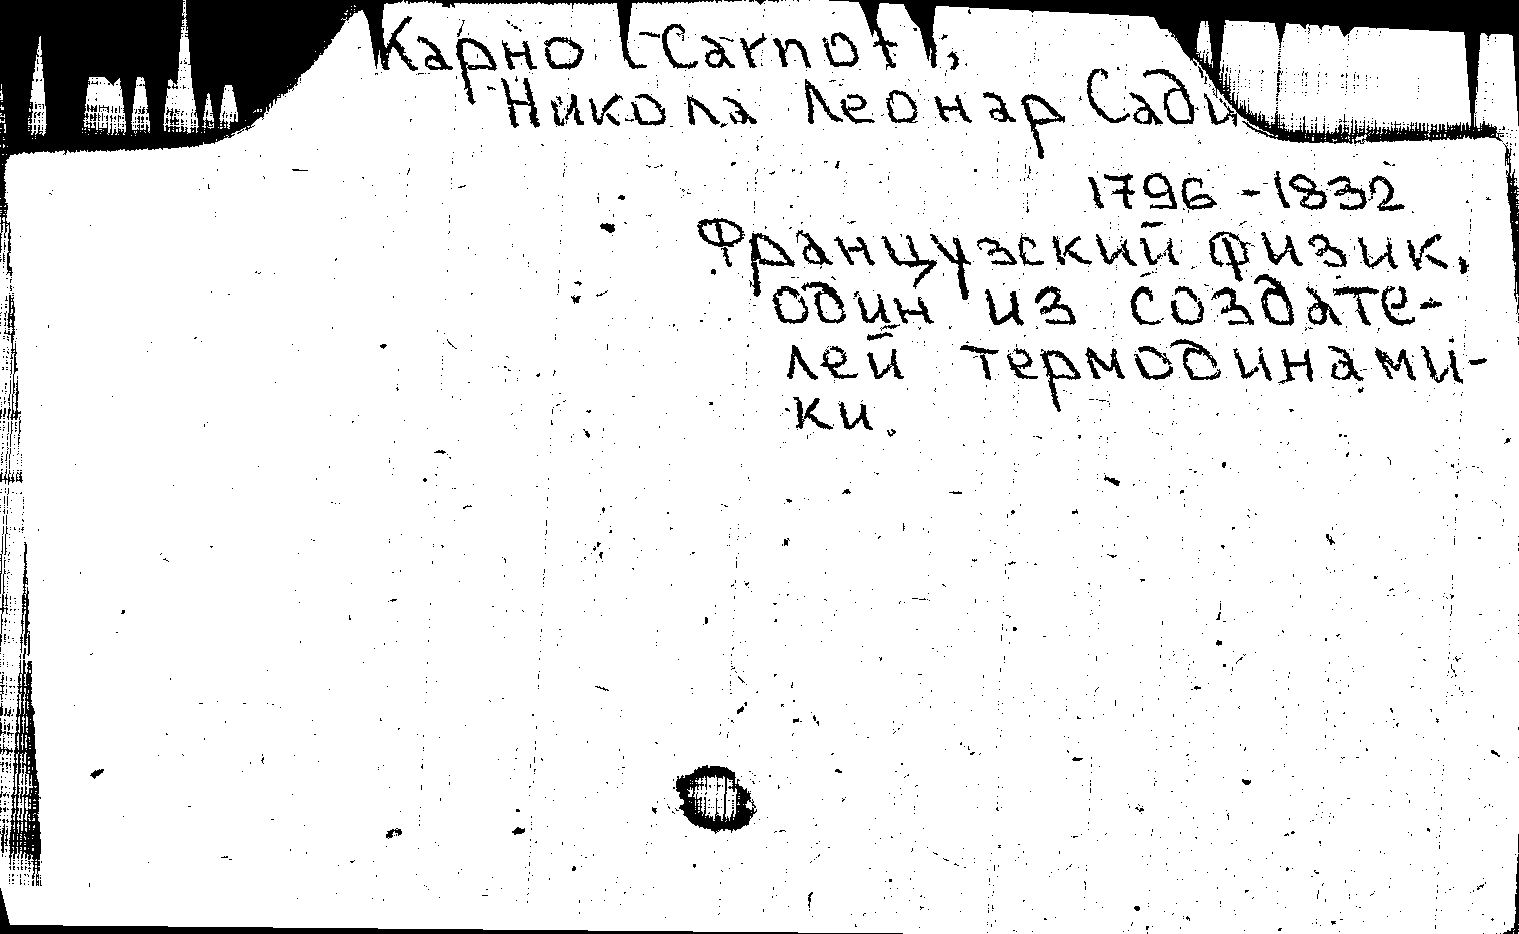 Карно (Carnot),
Никола Леонар Сади
1796 - 1832
Французский физик,
один из создате-
лей термодинами-
ки.